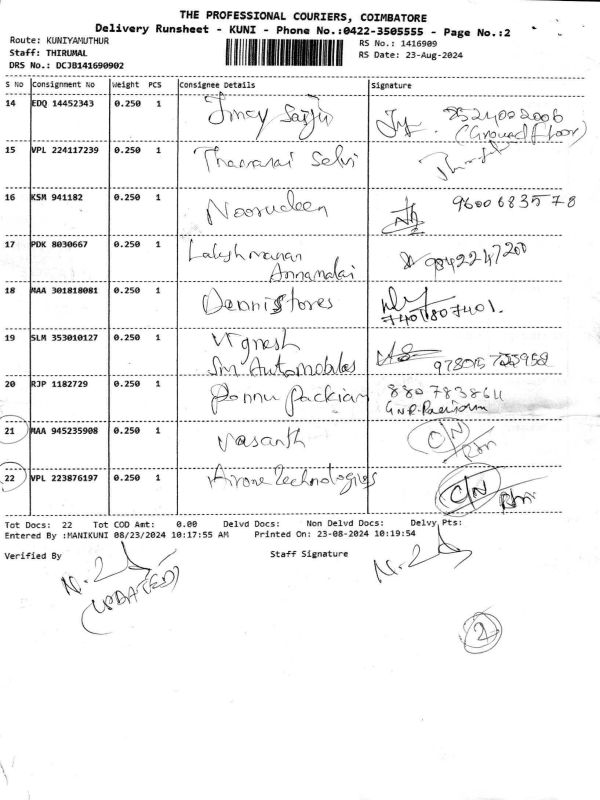 THE PROFESSIONAL COURIERS, COIMBATORE
Delivery Runsheet - KUNI - Phone No.:0422-3505555 - Page No.:2
Route: KUNIYAMUTHUR RS No.: 1416909
Staff: THIRUMAL RS Date: 23-Aug-2024
DRS No.: DCJB141690902
S No Consignment No Weight PCS Consignee Details Signature
14 EDQ 14452343 0.250 1 Jincy Saiju 8524002006
(Ground floor)
15 VPL 224117239 0.250 1 Selvi
16 KSM 941182 0.250 1 Noorudeen 9600683578
17 PDK 8030667 0.250 1 Lakshmanan
Annamalai 9842247200
18 MAA 301818081 0.250 1 Dennis Stores
7401807401.
19 SLM 353010127 0.250 1 Vignesh
Sm Automobiles
20 RJP 1182729 0.250 1 Ponnu Packiam
21 MAA 945235908 0.250 1 Vasanth C/N
22 VPL 223876197 0.250 1 Airone Technologies C/N
Tot Docs: 22 Tot COD Amt: 0.00 Delvd Docs: Non Delvd Docs: Delvy Pts:
Entered By :MANIKUNI 08/23/2024 10:17:55 AM Printed On: 23-08-2024 10:19:54
Verified By Staff Signature
(UPDATED)
2